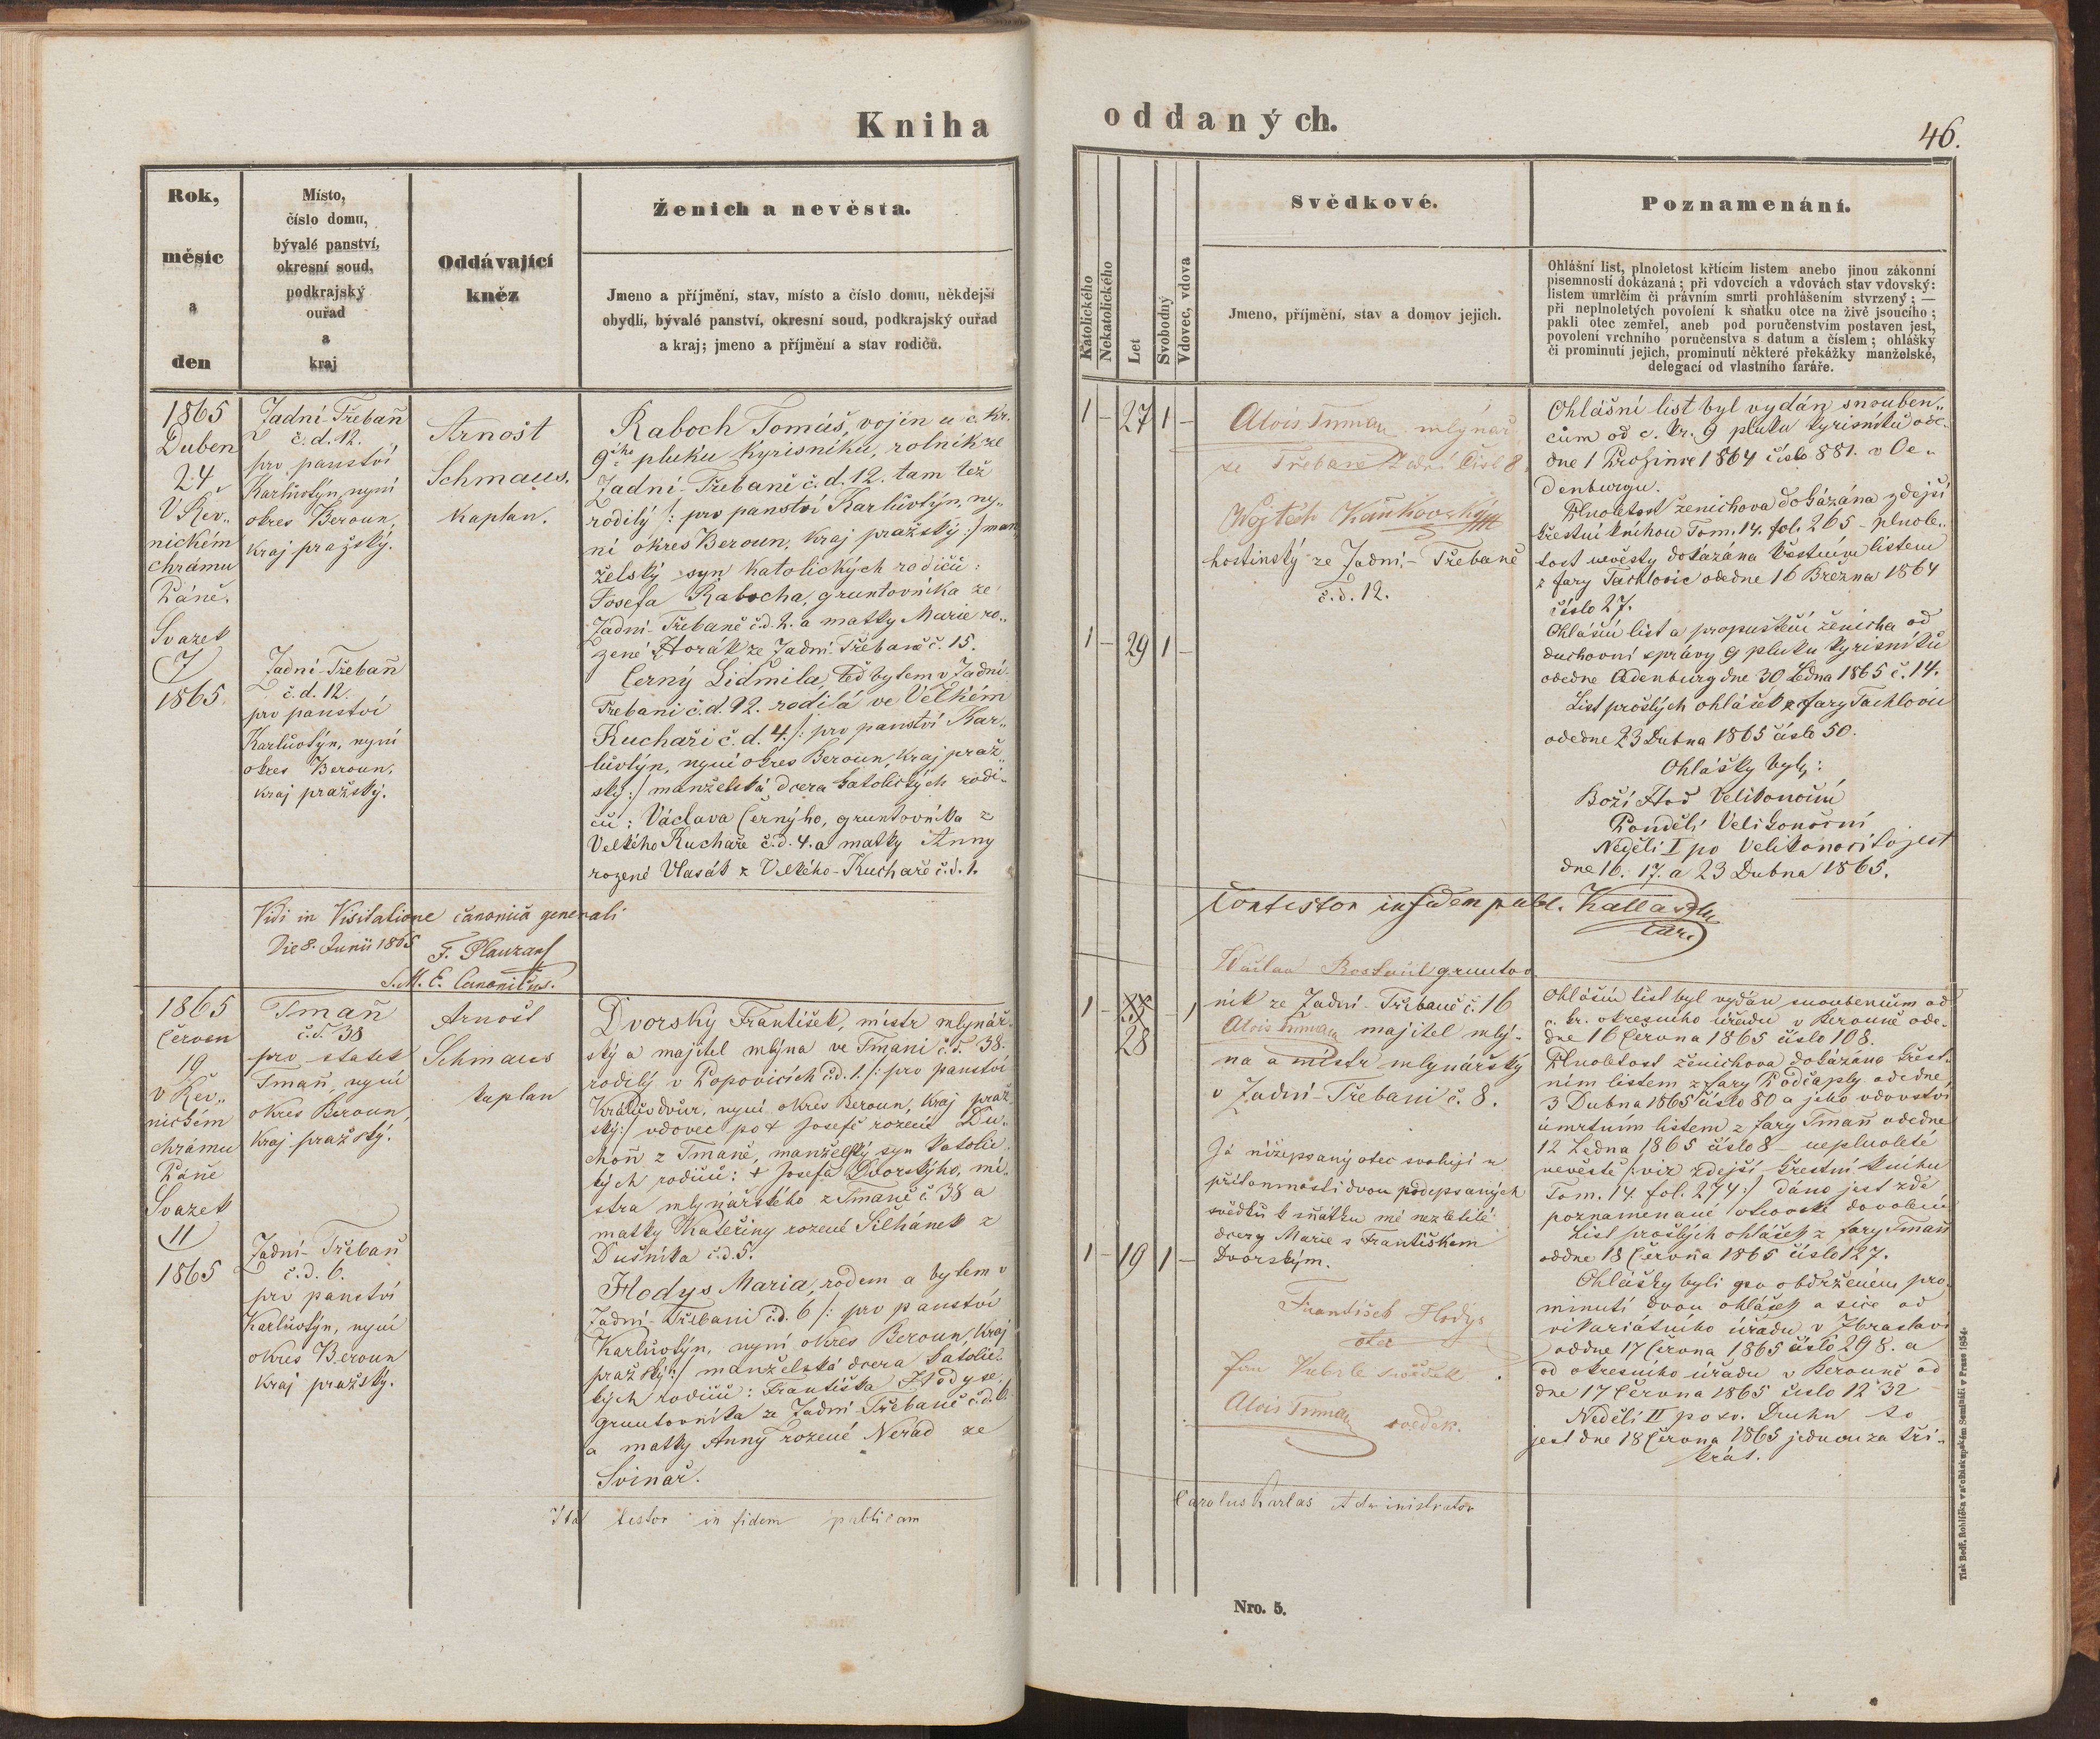 Kniha
oddaných.
46.
Rok,
měsíc
a
den
Místo,
číslo domu,
bývalé panství,
okresní soud,
podkrajský
ouřad
a
kraj
Oddávající
kněz
Ženich a nevěsta.
Jmeno a příjmění, stav, místo a číslo domu, někdejší
obydlí, bývalé panství, okresní soud, podkrajský ouřad
a kraj; jmeno a příjmění a stav rodičů.
Katolického
Nekatolického
Let
Svobodný
Vdovec, vdova
Svědkové.
Jmeno, příjmění, stav a domov jejich.
Poznamenání.
Ohlášní list, plnoletost křtícím listem anebo jinou zákonní
písemností dokázaná; při vdovcích a vdovách stav vdovský:
listem umrlčím či právním smrti prohlášením stvrzený; —
při neplnoletých povolení k sňatku otce na živě jsoucího;
pakli otec zemřel, aneb pod poručenstvím postaven jest,
povolení vrchního poručenstva s datum a číslem; ohlášky
či prominutí jejich, prominutí některé překážky manželské,
delegací od vlastního faráře.
1865
Duben
24
V Řev„
nickém
chrámu
Páně.
Svazek
7
1865
Zadní Třebaň
č. d. 12.
pro panství
Karlůvtýn, nyní
okres Beroun,
kraj pražský.
Zadní-Třebaň
č. d. 12.
pro panství
Karlůvtýn, nyní
okres Beroun,
kraj pražský.
Arnošt
Schmaus.
kaplan.
Raboch Tomáš, vojín u c. kr.
9ho pluku kyrisníků, rolník ze
Zadní-Třebaně č. d. 12. tam též
rodilý /: pro panství Karlůvtýn, ny„
ní okres Beroun, kraj pražský :/ man„
želský syn katolických rodičů:
Josefa Rabocha, gruntovníka ze
Zadní-Třebaně č. d. 2. a matky Marie ro„
zené Horák ze Zadní Třebaně č. 15.
Černý Lidmila, teď bytem v Zadní
Třebani č. d. 12. rodilá ve Velkém
Kuchaři č. d. 4. /: pro panství Kar„
lůvtýn, nyní okres Beroun, kraj praž„
ský :/ manželská dcera katolických rodi„
čů: Václava Černýho, gruntovníka z
Velkého Kuchaře č. d. 4. a matky Anny
rozené Vlasák z Velkého-Kuchaře č. d. 1.
1 – 27 1 –
1 – 29 1 –
Alois Truman mlynář
ze Třebaně Zadní čísl 8
Wojtěch Kaňkovský
hostinský ze Zadní-Třebaně
č. d. 12.
Ohlášní list byl vydán snouben„
cům od c. kr. 9 pluku kyrisníků ode
dne 1 Prosince 1864 číslo 881. v Oe„
denburgu.
Plnoletost ženichova dokázána zdejší
křestní knihou Tom. 14. fol. 265 – plnole„
tost nevěsty dokázána křestním listem
z fary Tachlovic odedne 16 Března 1864
číslo 27.
Ohlášní list a propuštění ženicha od
duchovní správy 9 pluku kyrisníků
odedne Oedenburg dne 30 Ledna 1865 č. 14.
List prošlých ohlášek z fary Tachlovic
odedne 23 Dubna 1865 číslo 50.
Ohlášky byly:
Boží Hod Velikonoční
Pondělí Velikonoční
Neděli I po Velikonoci to jest
dne 16. 17. a 23 Dubna 1865.
Vidi in Visitatione canonica generali
Die 8. Junii 1865
S. M. E. Canonicus.
in fidem publ.
1865
Červen
19
v Řev„
nickém
chrámu
Páně
Svazek
11
1865
Tmaň
č. d. 38
pro statek
Tmaň, nyní
okres Beroun,
kraj pražský.
Zadní-Třebaň
č. d. 6.
pro panství
Karlůvtýn, nyní
okres Beroun
kraj pražský.
Arnošt
Schmaus
kaplan
Dvorský František, místr mlynář„
ský a majitel mlýna ve Tmani č. d. 38.
rodilý v Popovicích č. d. 1. /: pro panství
Králův dvůr, nyní okres Beroun, kraj praž„
ský :/ vdovec po † Josefě rozené Du„
choň z Tmaně, manželský syn katolic„
kých rodičů: † Josefa Dvorskýho, mí„
stra mlynářského z Tmaně č. 38 a
matky Kateřiny rozené Silhánek z
Dušníka č. d. 5.
Hodys Maria, rodem a bytem v
Zadní-Třebani č. d. 6 /: pro panství
Karlůvtýn, nyní okres Beroun, kraj
pražský :/ manželská dcera katolic„
kých rodičů: Františka Hodyse,
gruntovníka ze Zadní Třebaně č. d. 6.
a matky Anny rozené Nerad ze
Svinař.
1 – 28 – 1
1 – 19 1 –
Wáclav gruntov
ník ze Zadní-Třebaně č. 16
Alois Truman majitel mlý„
na a místr mlynářský
v Zadní-Třebani č. 8.
Já nížepsaný otec svoluji v
přítomnosti dvou podepsaných
svědků k sňátku mé nezletilé
dcery Marie s Františkem
Dvorským.
František Hodys
otec
svědek
Alois Truman
svědek.
Ohlášní list byl vydán snoubencům od
c. kr. okresního úřadu v Berouně ode„
dne 16 Června 1865 číslo 108.
Plnoletost ženichova dokázána křest„
ním listem z fary Podčaply odedne
3 Dubna 1865 číslo 80 a jeho vdovství
úmrtním listem z fary Tmaň odedne
12 Ledna 1865 číslo 8 – neplnoleté
nevěstě /: viz zdejší křestní knihu
Tom. 14. fol. 274 :/ dáno jest zde
poznamenané otcovské dovolení
List prošlých ohlášek z fary Tmaň
oddne 18 Června 1865 číslo 127.
Ohlášky byli po obdrženém pro„
minutí dvou ohlášek a sice od
vikariátního úřadu v Zbraslavi
oddne 17 Června 1865 číslo 298. a
od okresního úřadu v Berouně od
dne 17 Června 1865 číslo 1232
Neděli II po sv. Duchu to
jest dne 18 Června 1865 jednou za tři„
krát.
Ita testor in fidem publicam
Carolus Karlas Administrator
Nro. 5.
Tisk Bedř. Rohlíčka v arcibiskupském Semináři v Praze 1854.